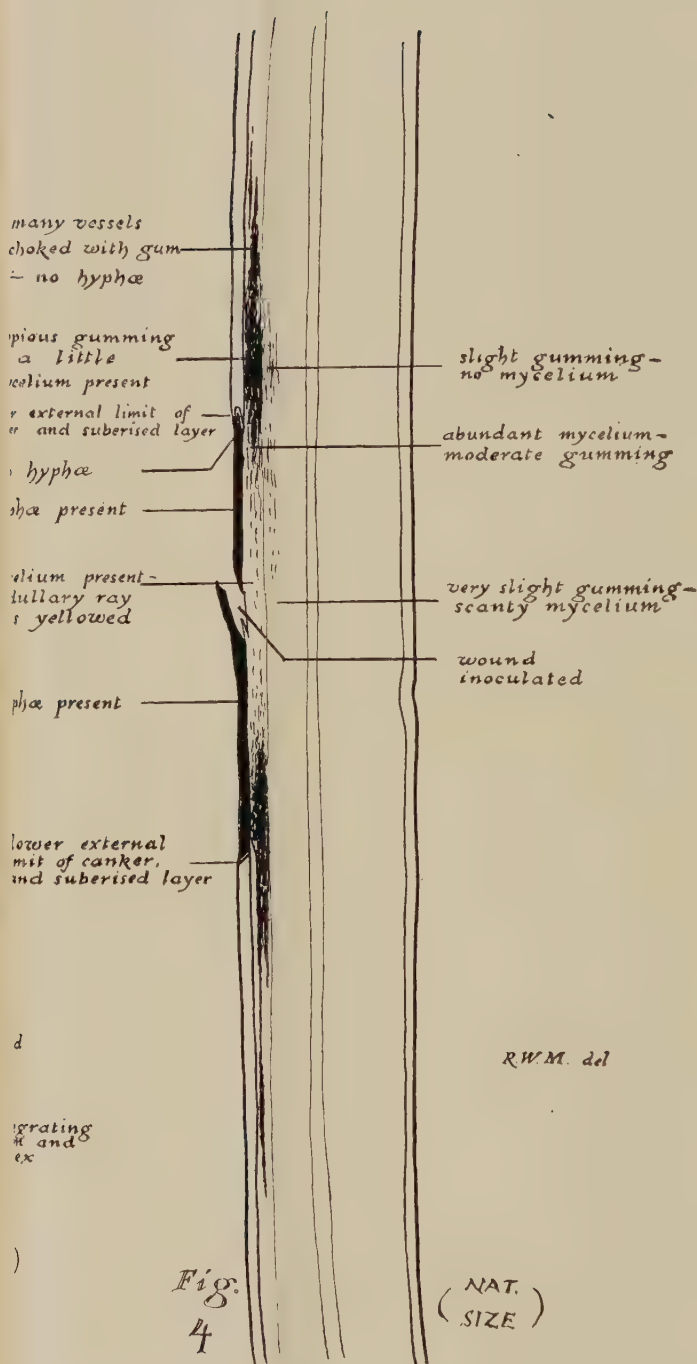 many vessels
choked with gum
– no hyphæ
pious gumming
a little
celium present
r external limit of
er and suberised layer
hyphæ
phæ present
elium present–
dullary ray
s yellowed
phæ present
lower external
mit of canker,
and suberised layer
d
grating
and
ex
)
slight gumming–
no mycelium
abundant mycelium–
moderate gumming
very slight gumming–
scanty mycelium
wound
inoculated
R.W.M. del
Fig.
4
( NAT.
SIZE )